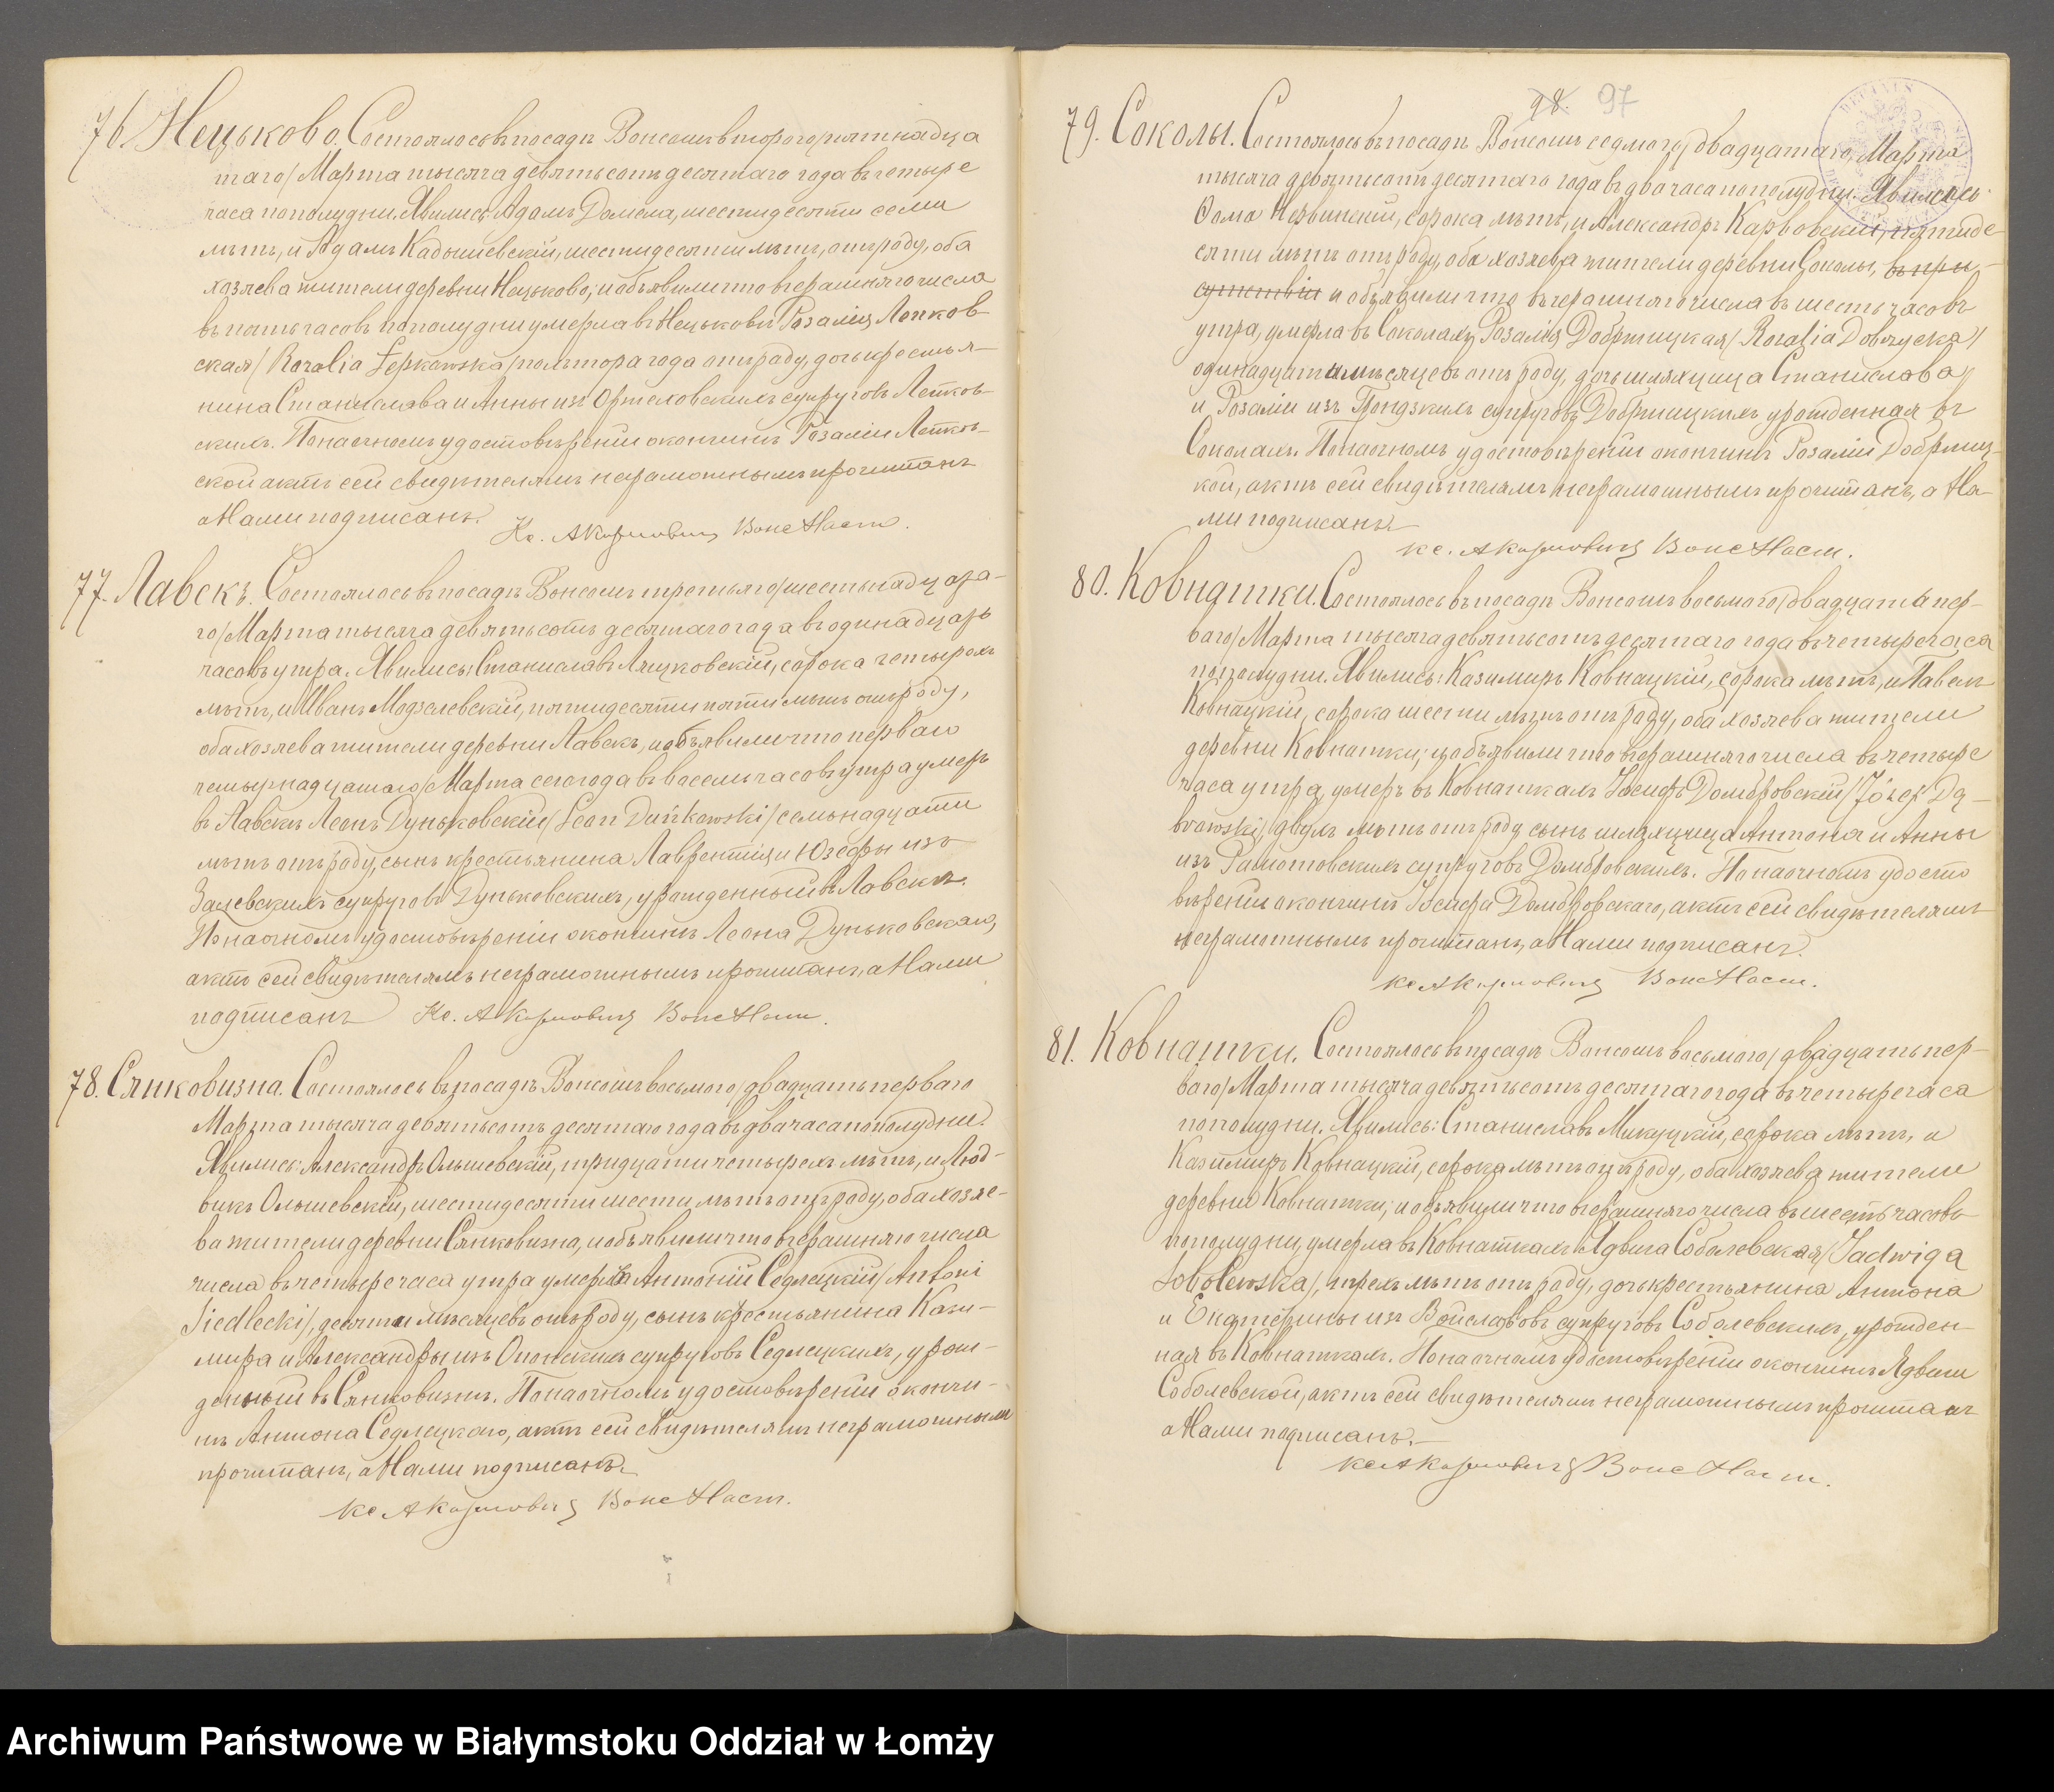 76. Нецьково. Состоялось въ посадѣ Вонсошъ второго/пятнадца
таго/ Марта тысяча девятьсотъ десятаго года въ четыре
часа пополудни. Явились Адамъ Домела, шестидесяти семи
лѣтъ, и Адамъ Кадышевскій, шестидесяти лѣтъ, отъ роду, оба
хозяева жители деревни Нецьково, и объявили что вчерашняго числа
въ пять часовъ пополудни умерла въ Нецьковѣ Розалія Лепков-
ская/ Rozalia Łepkowska/ полтора года отъ роду, дочь крестья-
нина Станислава и Анны изъ Ортеловскихъ супруговъ Лепков-
скихъ. По наочномъ удостовѣреніи о кончинѣ Розаліи Лепков-
ской актъ сей свидѣтелямъ неграмотнымъ прочитанъ
а Нами подписанъ.
Кс. А Карповичъ Вонс Наст.
77. Лавскъ. Состоялось въ посадѣ Вонсошъ третьяго/шестьнадцата-
го/ Марта тысяча девятьсотъ десятаго года въ одинадцать
часовъ утра. Явились: Станиславъ Ляцковскій, сорока четырехъ
лѣтъ, и Иванъ Модзелевскій, пятидесяти пяти лѣтъ отъ роду,
оба хозяева жители деревни Лавскъ, и объявили что перваго
четырнадцатаго/ Марта сего года въ восемь часовъ утра умеръ
въ Лавскѣ Леонъ Дуньковскій/ Leon Duńkowski/ семьнадцати
лѣтъ отъ роду, сынъ крестьянина Лаврентія и Юзефы изъ
Залевскихъ супруговъ Дуньковскихъ, урожденный въ Лавскѣ.
По наочномъ удостовѣреніи о кончинѣ Леона Дуньковскаго,
актъ сей свидѣтелямъ неграмотнымъ прочитанъ, а Нами
подписанъ Кс. А Карповичъ Вонс Наст.
78. Сянковизна. Состоялось въ посадѣ Вонсошъ восьмого/двадцать перваго
Марта тысяча девятьсотъ десятаго года въ два часа пополудни.
Явились: Александръ Ольшевскій, тридцати четырехъ лѣтъ, и Люд-
викъ Ольшевскій, шестидесяти шести лѣтъ отъ роду, оба хозяе-
ва жители деревни Сянковизна, и объявили что вчерашняго числа
числа въ четыре часа утра умеръ Антоній Седлецкій/ Antoni
Siedlecki/, десяти мѣсяцевъ отъ роду, сынъ крестьянина Кази-
мира и Александры изъ Опонскихъ супруговъ Седлецкихъ, урож-
денный въ Сянковизнѣ. По наочномъ удостовѣреніи о кончи-
нѣ Антона Седлецкаго, актъ сей свидѣтелямъ неграмотнымъ
прочитанъ, а Нами подписанъ.
Кс А Карповичъ Вонс Наст.
98. 97
79. Соколы. Состоялось въ посадѣ Вонсошъ седмого/двадцатаго Марта
тысяча девятьсотъ десятаго года въ два часа пополудни. Явились:
Ѳома Нервинскій, сорока лѣтъ, и Александръ Карвовскій, пятиде-
сяти лѣтъ отъ роду, оба хозяева жители деревни Соколы, въ при-
сутствіи и объявили что вчерашняго числа въ шесть часовъ
утра, умерла въ Соколахъ Розалія Добржицкая/ Rozalia Dobrzycka/
одинадцати мѣсяцевъ отъ роду, дочь шляхтица Станислава
и Розаліи изъ Грондзкихъ супруговъ Добржицкихъ урожденная въ
Соколахъ. По наочномъ удостовѣреніи о кончинѣ Розаліи Добржиц-
кой, актъ сей свидѣтелямъ неграмотнымъ прочитанъ, а На-
ми подписанъ.
Кс. А Карповичъ Вонс Наст.
80. Ковнатки. Состоялось въ посадѣ Вонсошъ восьмого/двадцать пер-
ваго/ Марта тысяча девятьсотъ десятаго года въ четыре часа
пополудни. Явились: Казимиръ Ковнацкій, сорока лѣтъ, и Павелъ
Ковнацкій, сорока шести лѣтъ отъ роду, оба хозяева жители
деревни Ковнатки; и объявили что вчерашняго числа въ четыре
часа утра, умеръ въ Ковнаткахъ Іосифъ Домбровскій/ Józef Dą-
browski/, двухъ лѣтъ отъ роду сынъ шляхтица Антона и Анны
изъ Рамотовскихъ супруговъ Домбровскихъ. По наочномъ удосто
вѣреніи о кончинѣ Іосифа Домбровскаго, актъ сей свидѣтелямъ
неграмотнымъ прочитанъ, а Нами подписанъ.
Кс А Карповичъ Вонс Наст.
81. Ковнатки. Состоялось въ посадѣ Вонсошъ восьмого/двадцать пер-
ваго/ Марта тысяча девятьсотъ десятаго года въ четыре часа
пополудни. Явились: Станиславъ Микуцкій, сорока лѣтъ, и
Казимиръ Ковнацкій, сорока лѣтъ отъ роду, оба хозяева жители
деревни Ковнатки; и объявили что вчерашняго числа въ шесть часовъ
пополудни, умерла въ Ковнаткахъ Ядвига Соболевская/ Jadwiga
Sobolewska/, трехъ лѣтъ отъ роду, дочь крестьянина Антона
и Екатерины изъ Войславовъ супруговъ Соболевскихъ, урожден-
ная въ Ковнаткахъ. По наочномъ удостовѣреніи о кончинѣ Ядвиги
Соболевской, актъ сей свидѣтелямъ неграмотнымъ прочитанъ
а Нами подписанъ.
Кс А Карповичъ Вонс Наст.
Archiwum Państwowe w Białymstoku Oddział w Łomży